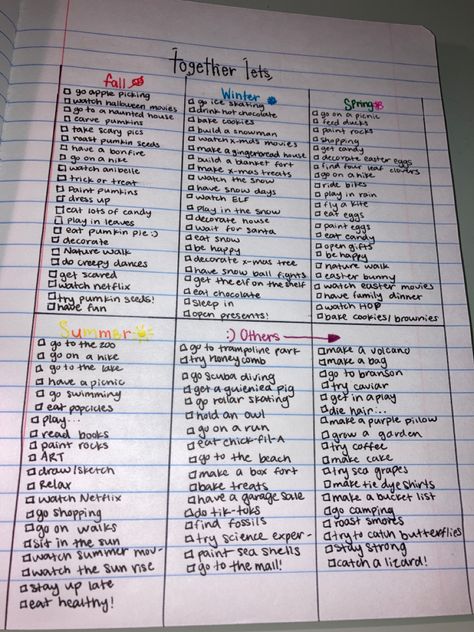 Together lets
fall
☐ go apple picking
☐ watch halloween movies
☐ go to a haunted house
☐ carve pumkins
☐ take scary pics
☐ roast pumpkin seeds
☐ have a bonfire
☐ go on a hike
☐ watch anibelle
☐ trick or treat
☐ Paint pumkins
☐ dress up
☐ eat lots of candy
☐ play in leaves
☐ eat pumpkin pie :)
☐ decorate
☐ Nature walk
☐ do creepy dances
☐ get scared
☐ watch netflix
☐ try pumkin seeds!
☐ have fun
Winter
☐ go ice skating
☐ drink hot chocolate
☐ bake cookies
☐ build a snowman
☐ watch x-mas movies
☐ make a gingerbread house
☐ build a blanket fort
☐ make x-mas treats
☐ watch the snow
☐ have snow days
☐ watch ELF
☐ play in the snow
☐ decorate house
☐ wait for santa
☐ eat snow
☐ be happy
☐ decorate x-mas tree
☐ have snow ball fights
☐ get the elf on the shelf
☐ eat chocolate
☐ sleep in
☐ open presents!
Spring
☐ go on a picnic
☐ feed ducks
☐ paint rocks
☐ shopping
☐ get candy
☐ decorate easter eggs
☐ find four leaf clovers
☐ go on a hike
☐ ride bikes
☐ play in rain
☐ fly a kite
☐ eat eggs
☐ paint eggs
☐ eat candy
☐ open gifts
☐ be happy
☐ nature walk
☐ easter bunny
☐ watch easter movies
☐ have family dinner
☐ watch HOP
☐ bake cookies/brownies
Summer
☐ go to the zoo
☐ go on a hike
☐ go to the lake
☐ have a picnic
☐ go swimming
☐ eat popcicles
☐ play...
☐ read books
☐ paint rocks
☐ ART
☐ draw/sketch
☐ Relax
☐ watch Netflix
☐ go shopping
☐ go on walks
☐ sit in the sun
☐ watch summer mov-
☐ watch the sun rise
☐ stay up late
☐ eat healthy!
:) Others
☐ go to trampoline park
☐ try honeycomb
☐ go scuba diving
☐ get a guienied pig
☐ go rollar skating
☐ hold an owl
☐ go on a run
☐ eat chick-fil-A
☐ go to the beach
☐ make a box fort
☐ bake treats
☐ have a garage sale
☐ do tik-toks
☐ find fossils
☐ try science exper-
☐ paint sea shells
☐ go to the mall!
☐ make a volcano
☐ make a bag
☐ go to branson
☐ try caviar
☐ get in a play
☐ die hair...
☐ make a purple pillow
☐ grow a garden
☐ try coffee
☐ make cake
☐ try sea grapes
☐ make tie dye shirts
☐ make a bucket list
☐ go camping
☐ roast smores
☐ try to catch butterflies
☐ stay strong
☐ catch a lizard!